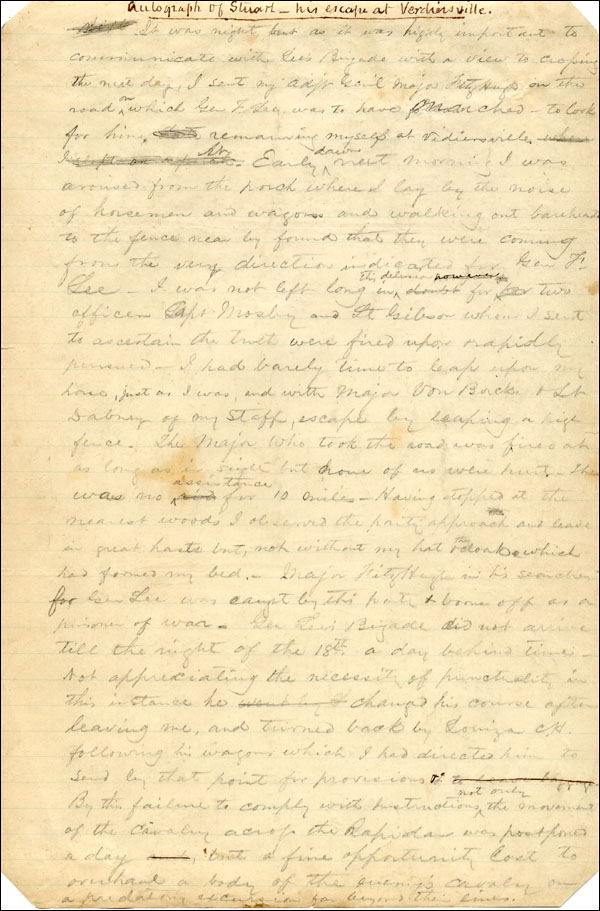 Autograph of Stuart – his escape at Verdiersville.
It was night, but as it was highly important to
communicate with Lees Brigade with a view to crossing
the next day, I sent my Adjt Genl Major Fitzhugh on the
road on which Gen F Lee was to have marched – to look
for him, remaining myself at Vidiersville.
Early dawn next morning I was
aroused from the porch where I lay by the noise
of horsemen and wagons and walking out barehead
to the fence near by found that they were coming
from the very direction indicated for Gen F.
Lee – I was not left long in this delusion however for two
officers Capt Mosby and Lt Gibson whom I sent
to ascertain the truth were fired upon & rapidly
pursued – I had barely time to leap upon my
horse, just as I was, and with Major Von Borcke & Lt
Dabney of my Staff, escape by leaping a high
fence. The Major who took the road was fired at
as long as in sight but none of us were hurt – There
was no assistance for 10 miles – Having stopped at the
nearest woods I observed the party approach and leave
in great haste but, not without my hat & the cloak which
had formed my bed. – Major Fitz Hugh in his searches
for Gen Lee was caught by this party & borne off as a
prisoner of war – Gen Lee's Brigade did not arrive
till the night of the 18th. a day behind time –
Not appreciating the necessity of punctuality in
this instance he changed his course after
leaving me, and turned back by Louiza CH.
following his wagons which I had directed him to
send by that point for provisions &c
By this failure to comply with instructions not only the movement
of the Cavalry across the Rapidan was postponed
a day, but a fine opportunity lost to
overhaul a body of the enemy's cavalry on
a predatory excursion far beyond their lines.